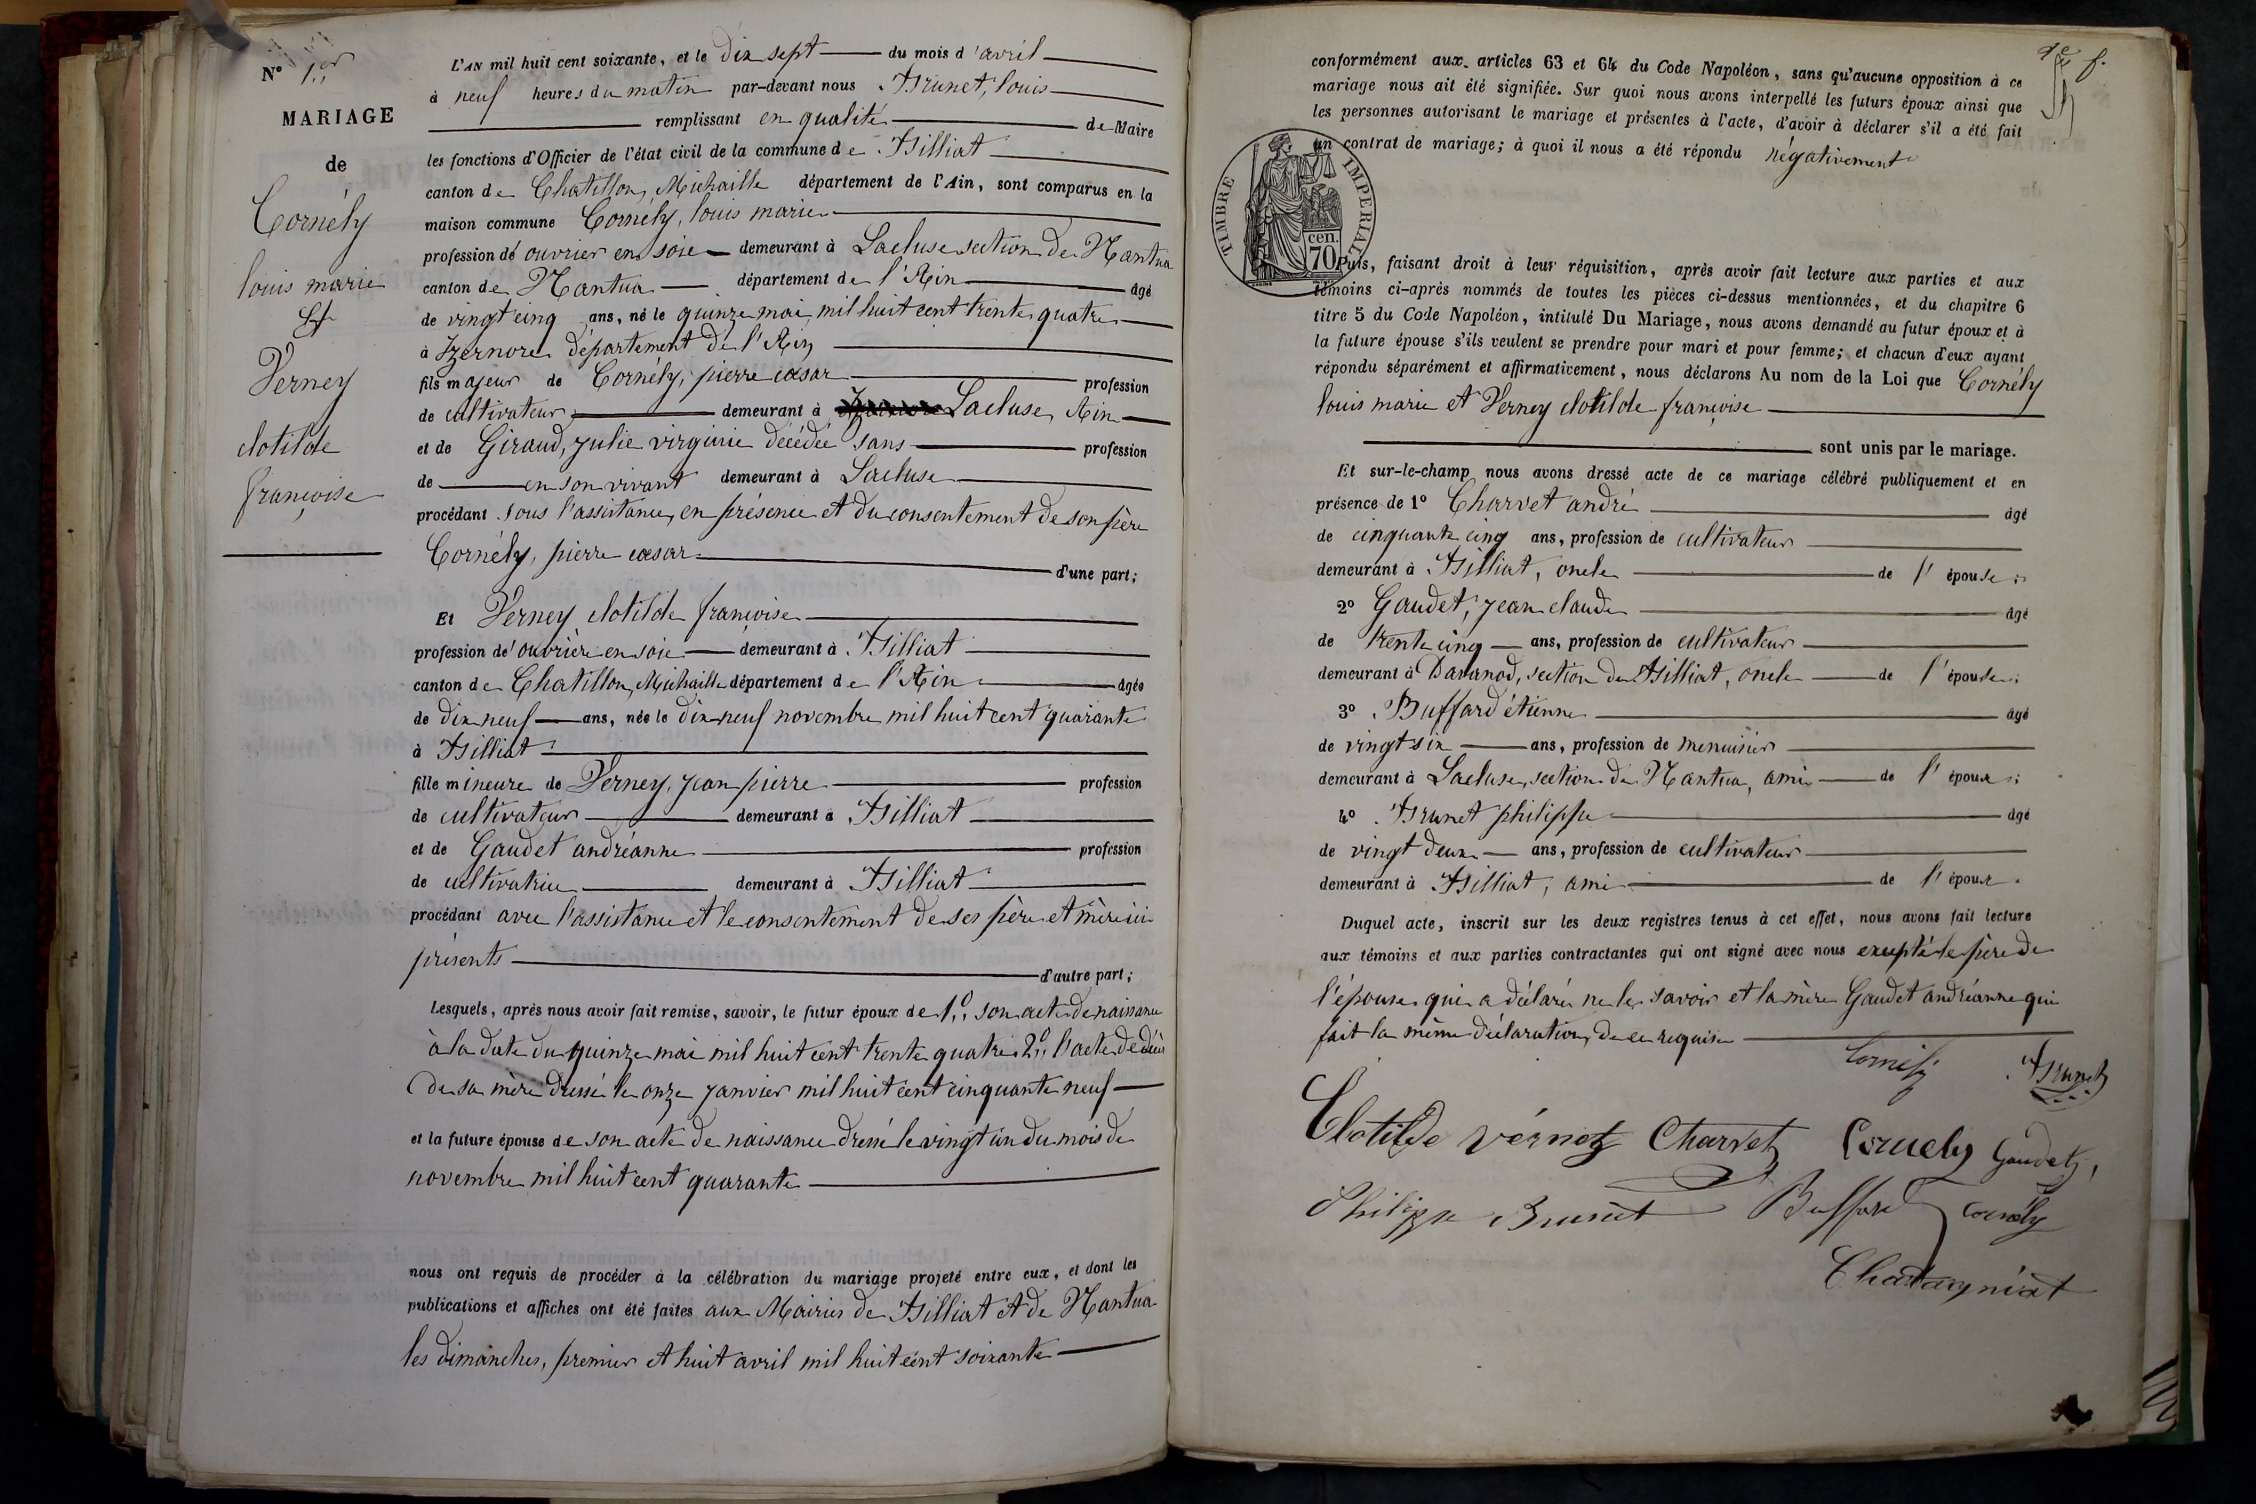 N° 1er
MARIAGE
de
Cornély
louis marie
Et
Verney
clotilde
françoise
L'AN mil huit cent soixante, et le dix sept du mois d'avril
à neuf heures du matin par-devant nous Brunet, louis
remplissant en qualité de Maire
les fonctions d'Officier de l'état civil de la commune de Billiat
canton de Chatillon, Michaille département de l'Ain, sont comparus en la
maison commune Cornély, louis marie
profession de ouvrier en soie demeurant à Lacluse section de Nantua
canton de Nantua département de l'Ain âgé
de vingt cinq ans, né le quinze mai mil huit cent trente quatre
à Izernore département de l'Ain
fils majeur de Cornély, pierre cœsar profession
de cultivateur demeurant à Lacluse, Ain
et de Giraud, julie virginie décédée sans profession
de en son vivant demeurant à Lacluse
procédant sous l'assistance, en présence et du consentement de son père
Cornély, pierre cœsar
d'une part;
Et Verney clotilde françoise
profession de ouvrière en soie demeurant à Billiat
canton de Chatillon, Michaille département de l'Ain âgée
de dix neuf ans, née le dix neuf novembre mil huit cent quarante
à Billiat
fille mineure de Verney, jean pierre profession
de cultivateur demeurant à Billiat
et de Gaudet andréanne profession
de cultivatrice demeurant à Billiat
procédant avec l'assistance et le consentement de ses père et mère ici
présents
d'autre part;
Lesquels, après nous avoir fait remise, savoir, le futur époux de 1° son acte de naissance
à la date du quinze mai mil huit cent trente quatre 2° l'acte de décès
de sa mère dressé le onze janvier mil huit cent cinquante neuf
et la future épouse de son acte de naissance dressé le vingt un du mois de
novembre mil huit cent quarante
nous ont requis de procéder à la célébration du mariage projeté entre eux, et dont les
publications et affiches ont été faites aux Mairies de Billiat et de Nantua
les dimanches, premier et huit avril mil huit cent soixante
conformément aux articles 63 et 64 du Code Napoléon, sans qu'aucune opposition à ce
mariage nous ait été signifiée. Sur quoi nous avons interpellé les futurs époux ainsi que
les personnes autorisant le mariage et présentes à l'acte, d'avoir à déclarer s'il a été fait
un contrat de mariage; à quoi il nous a été répondu négativement
TIMBRE IMPERIAL
70 cen.
Puis, faisant droit à leur réquisition, après avoir fait lecture aux parties et aux
témoins ci-après nommés de toutes les pièces ci-dessus mentionnées, et du chapitre 6
titre 5 du Code Napoléon, intitulé Du Mariage, nous avons demandé au futur époux et à
la future épouse s'ils veulent se prendre pour mari et pour femme; et chacun d'eux ayant
répondu séparément et affirmativement, nous déclarons Au nom de la Loi que Cornély
louis marie et Verney clotilde françoise
sont unis par le mariage.
Et sur-le-champ nous avons dressé acte de ce mariage célébré publiquement et en
présence de 1° Charvet andré âgé
de cinquante cinq ans, profession de cultivateur
demeurant à Billiat, oncle de l'épouse;
2° Gaudet, jean claude âgé
de trente cinq ans, profession de cultivateur
demeurant à Davanod, section de Billiat, oncle de l'épouse;
3° Buffard étienne âgé
de vingt six ans, profession de menuisier
demeurant à Lacluse, section de Nantua, ami de l'époux;
4° Brunet philippe âgé
de vingt deux ans, profession de cultivateur
demeurant à Billiat, ami de l'époux.
Duquel acte, inscrit sur les deux registres tenus à cet effet, nous avons fait lecture
aux témoins et aux parties contractantes qui ont signé avec nous excepté le père de
l'épouse qui a déclaré ne le savoir et la mère Gaudet andréanne qui
fait la même déclaration de ce requise
Cornély Brunet
Clotilde vérnet Charvet Cornely Gaudet,
Philippe Brunet Buffard cornély
Chatagniat